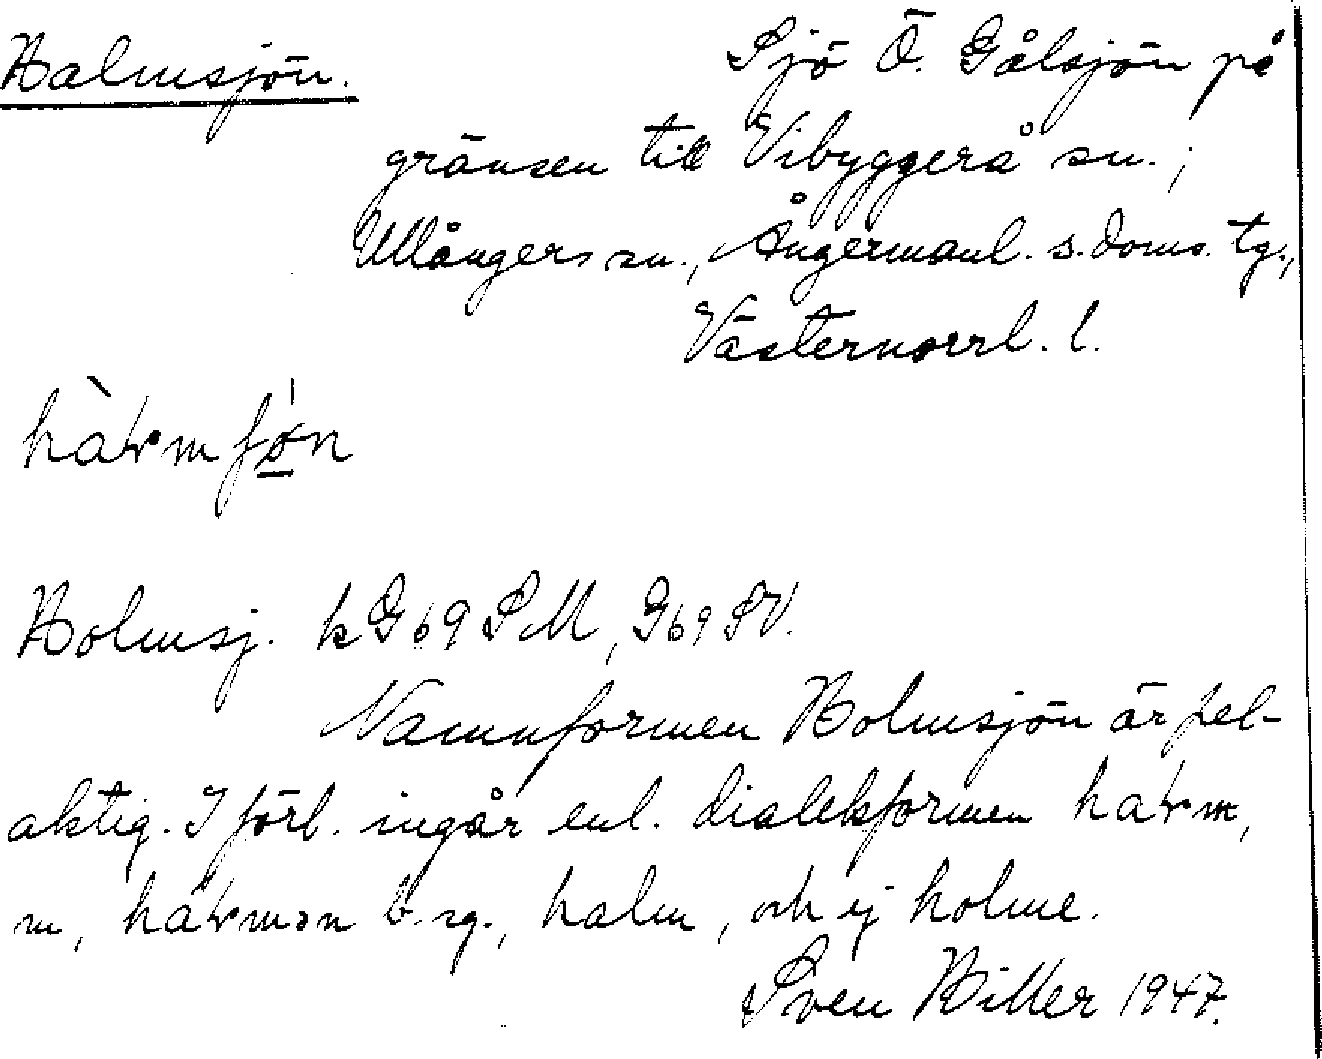 Halmsjön.
Sjö Ö. Gålsjön på
gränsen till Vibyggerå sn.;
Ullångers sn., Ångermanl. s. doms. tg.,
Västernorrl. l.
Holmsj. k G69 SM, G69 SV.
Namnformen Holmsjön är fel-
aktig. I förl. ingår enl. dialektformen
m, b. sg., halm, och ej holme.
Sven Hiller 1947.